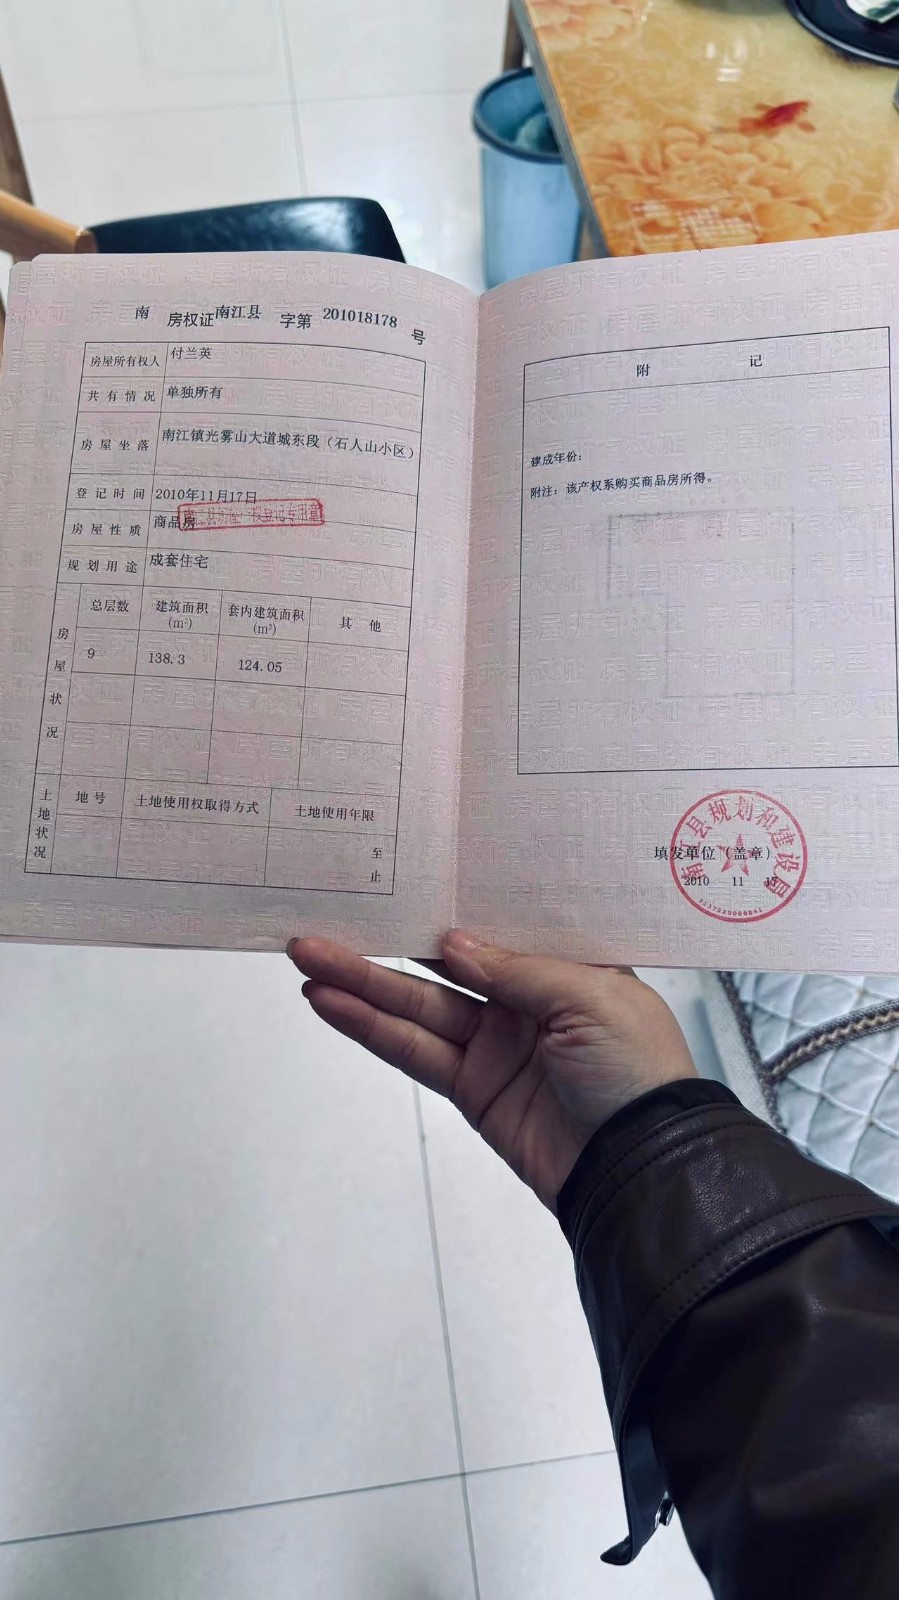 南 房权证 南江县 字第 201018178 号
房屋所有权人 付兰英
共有情况 单独所有
房屋坐落 南江镇光雾山大道城东段（石人山小区）
登记时间 2010年11月17日
房屋性质 商品房
规划用途 成套住宅
房屋状况
总层数 建筑面积(m²) 套内建筑面积(m²) 其他
9 138.3 124.05
土地状况
地号 土地使用权取得方式 土地使用年限
至
止
附 记
建成年份：
附注：该产权系购买商品房所得。
南江县规划和建设局
填发单位（盖章）
2010 11